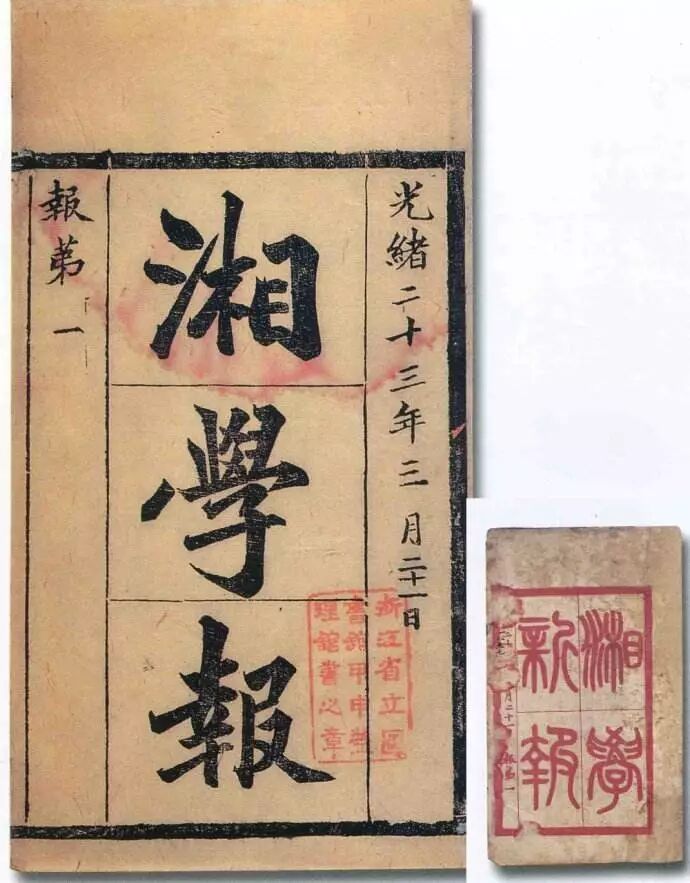 光緒二十三年三月二十一日
湘學報
報第一
浙江省立圖
書館甲申整
理館書之章
湘學
新報
月二十一
報第一